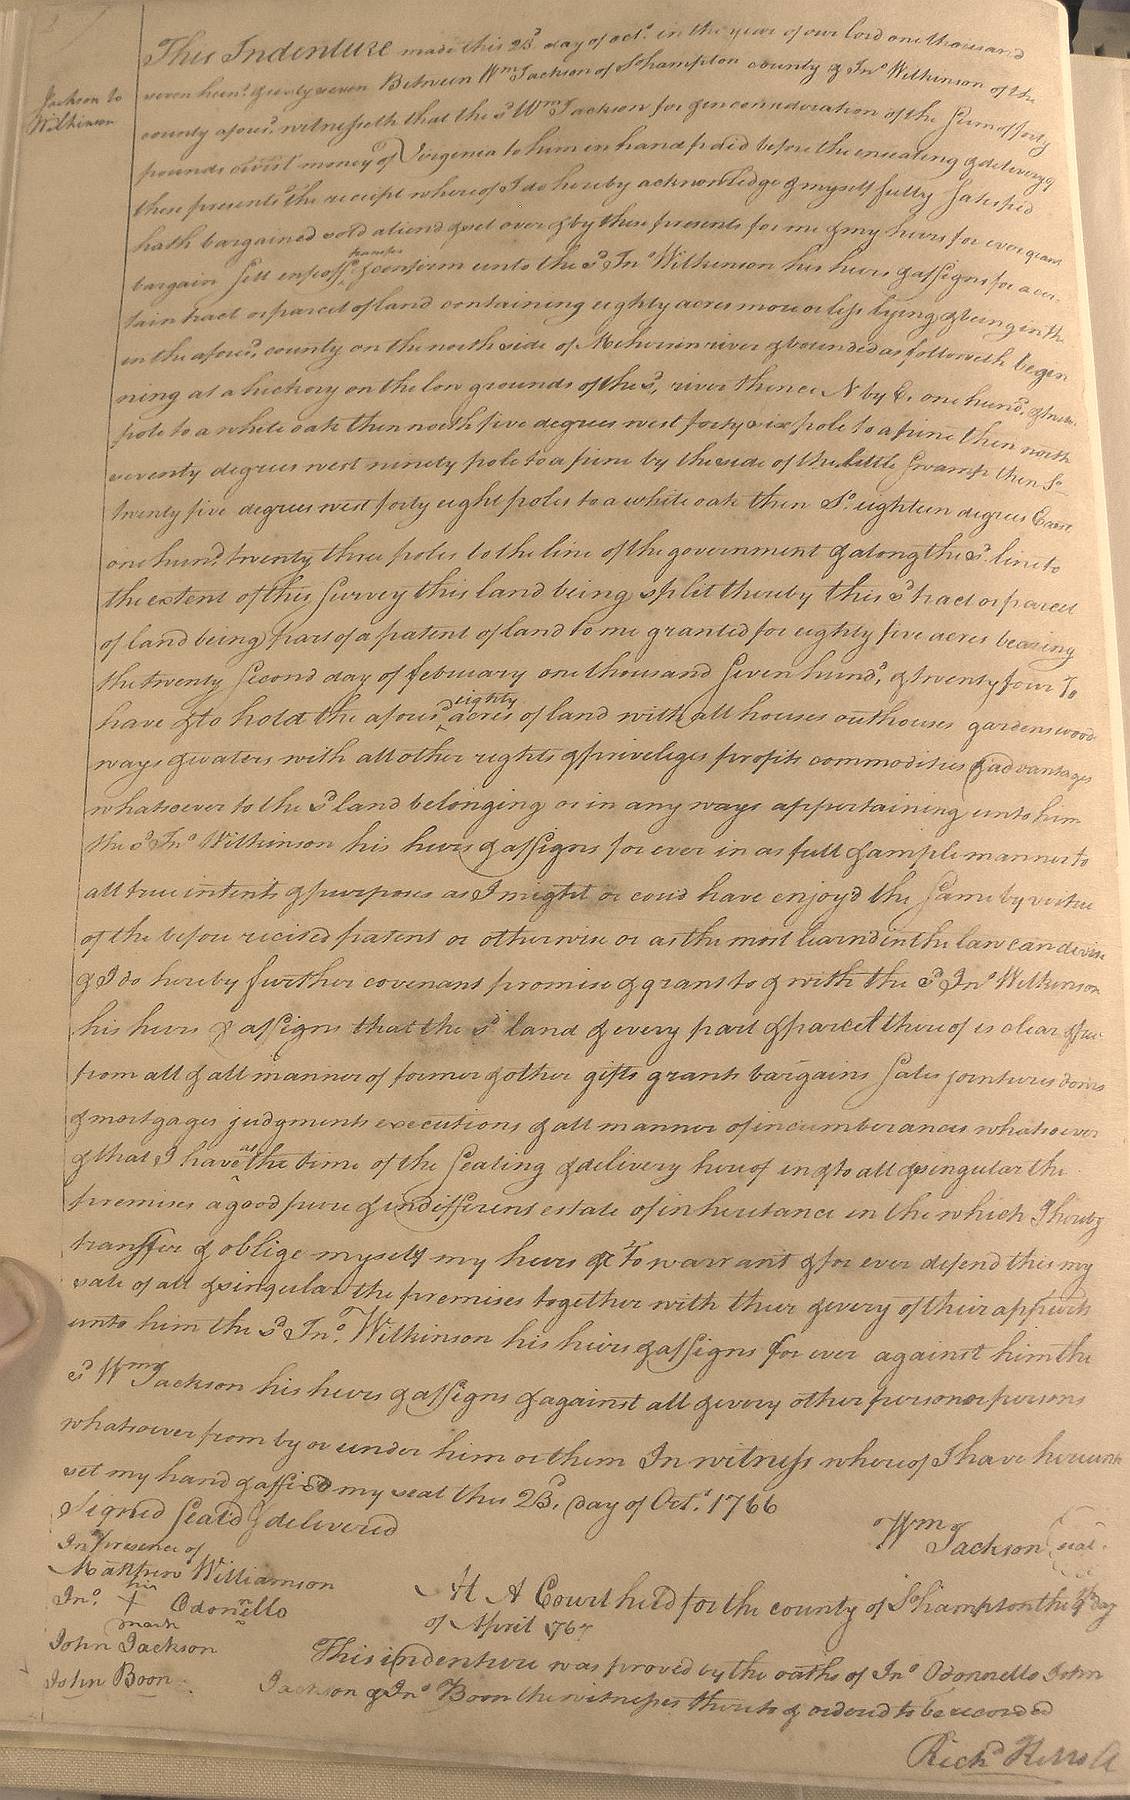 Jackson to
Wilkinson
This Indenture made this 23d day of oct.r in the year of our lord one thousand
seven hun.d & sixty seven Between Wm Jackson of So.hampton county & Jno Wilkinson of the
county afores.d witnesseth that the s.d Wm Jackson for & in consideration of the Sum of forty
pounds curr.t money of Virginia to him in hand p.d before the ensealing & delivery of
these presents the receipt whereof I do hereby acknowledge & myself fully Satisfied
hath bargained sold aliend & set over & by these presents for me & my heirs for ever grant
bargain Sell enfeoff transfer & confirm unto the s.d Jno Wilkinson his heirs & assigns for a cer-
tain tract or parcel of land containing eighty acres more or less lying & being in the
in the afores.d county on the north side of Meherrin river & bounded as followeth begin
ning at a hickory on the low grounds of the s.d river thence N by E. one hund.d &
pole to a white oak then north five degrees west forty six pole to a pine then north
seventy degrees west ninety pole to a pine by the side of the little Swamp then So
twenty five degrees west forty eight poles to a white oak then So. eighteen degrees East
one hun.d twenty three poles to the line of the government & along the s.d line to
the extent of this Survey this land being split thereby this s.d tract or parcel
of land being part of a patent of land to me granted for eighty five acres bearing
the twenty Second day of february one thousand Seven hund.d & twenty four To
have & to hold the afores.d eighty acres of land with all houses outhouses gardens woods
ways & waters with all other rights & priveleges profits commodities & advantages
whatsoever to the s.d land belonging or in any ways appertaining unto him
the s.d Jno Wilkinson his heirs & assigns for ever in as full & ample manner to
all true intents & purposes as I might or coud have enjoyd the Same by virtue
of the before recited patent or otherwise or as the most learnd in the law can devise
& I do hereby further covenant promise & grant to & with the s.d Jno Wilkinson
his heirs & assigns that the s.d land & every part & parcel thereof is clear & free
from all & all manner of former & other gifts grants bargains Sales jointures dowrs
& mortgages judgments executions & all manner of incumberances whatsoever
& that I have at the time of the Sealing & delivery hereof in & to all & singular the
premises a good pure & indifferent estate of inheritance in the which I hereby
transfer & oblige myself my heirs &c To warrant & for ever defend this my
sale of all & singular the premises together with their & every of their appurts
unto him the s.d Jno. Wilkinson his heirs & assigns for ever against him the
s.d Wm Jackson his heirs & assigns & against all & every other person or persons
whatsoever from by or under him or them In witness whereof I have hereunto
set my hand & affixed my seal this 23d. day of Oct.r 1766
Signed Seald & delivered
Wm Jackson seal
In presence of
Matthew Williamson
Jno. his + mark Odonnello
John Jackson
John Boon
At A Court held for the county of So.hampton the day
of April 1767
This indenture was proved by the oaths of Jno Odonnello John
Jackson & Jno Boon the witnesses thereto & ordered to be recorded
Richd Kello